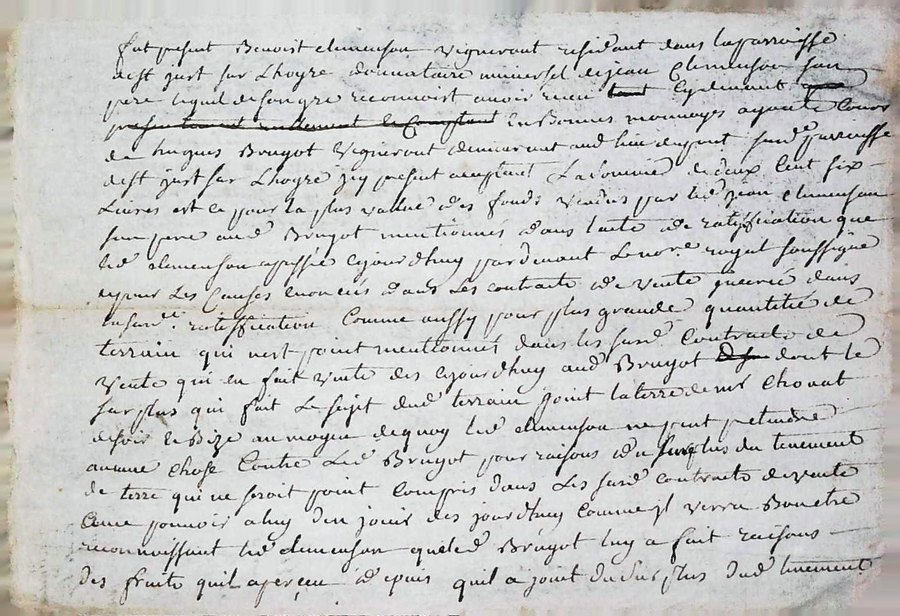 fut present Benoist clemenson Vigneront residant dans la parroisse
dest just sur Lhoyre donnataire universel de jean Clemenson son
pere lequel de son gre reconnoist avoir receu tout cydevant
presentement reallement le Comptant en Bonnes monnoyes ayant Cours
de hugues Brugot Vigneront demeurant aud lieu susd parroisse
dest just sur Lhoyre jcy present acceptant La somme de deux Cent six
Livres est ce pour la plus vallue des fonds vendus par led jean clemenson
son pere aud Brugot mentionnés dans lacte de ratiffication que
led clemenson a passé cejourdhuy pardevant Le nore royal soussigné
et pour Les Causes enoncés dans Les contracts de vente dans
lasusde ratiffication Comme aussy pour plus grande quantitié de
terrain qui nest point mentionnés dans les susd Contracts de
Vente qui en fait vente des cejourdhuy aud Brugot dont le
surplus qui fait Le sujet dud terrain joint la terre de mr Chovat
de soir et Bize au moyen de quoy led clemenson ne peut pretendre
aucune chose Contre Led Brugot pour raisons du surplus du tenement
de terre qui ne seroit point Compris dans Les susd contracts de vente
pouvoir a luy den jouir des jourdhuy comme jl verra Bon etre
reconnoissant led clemenson que led Brugot luy a fait raisons
des fruits quil a perceu depuis quil a joint du surplus dud tenement